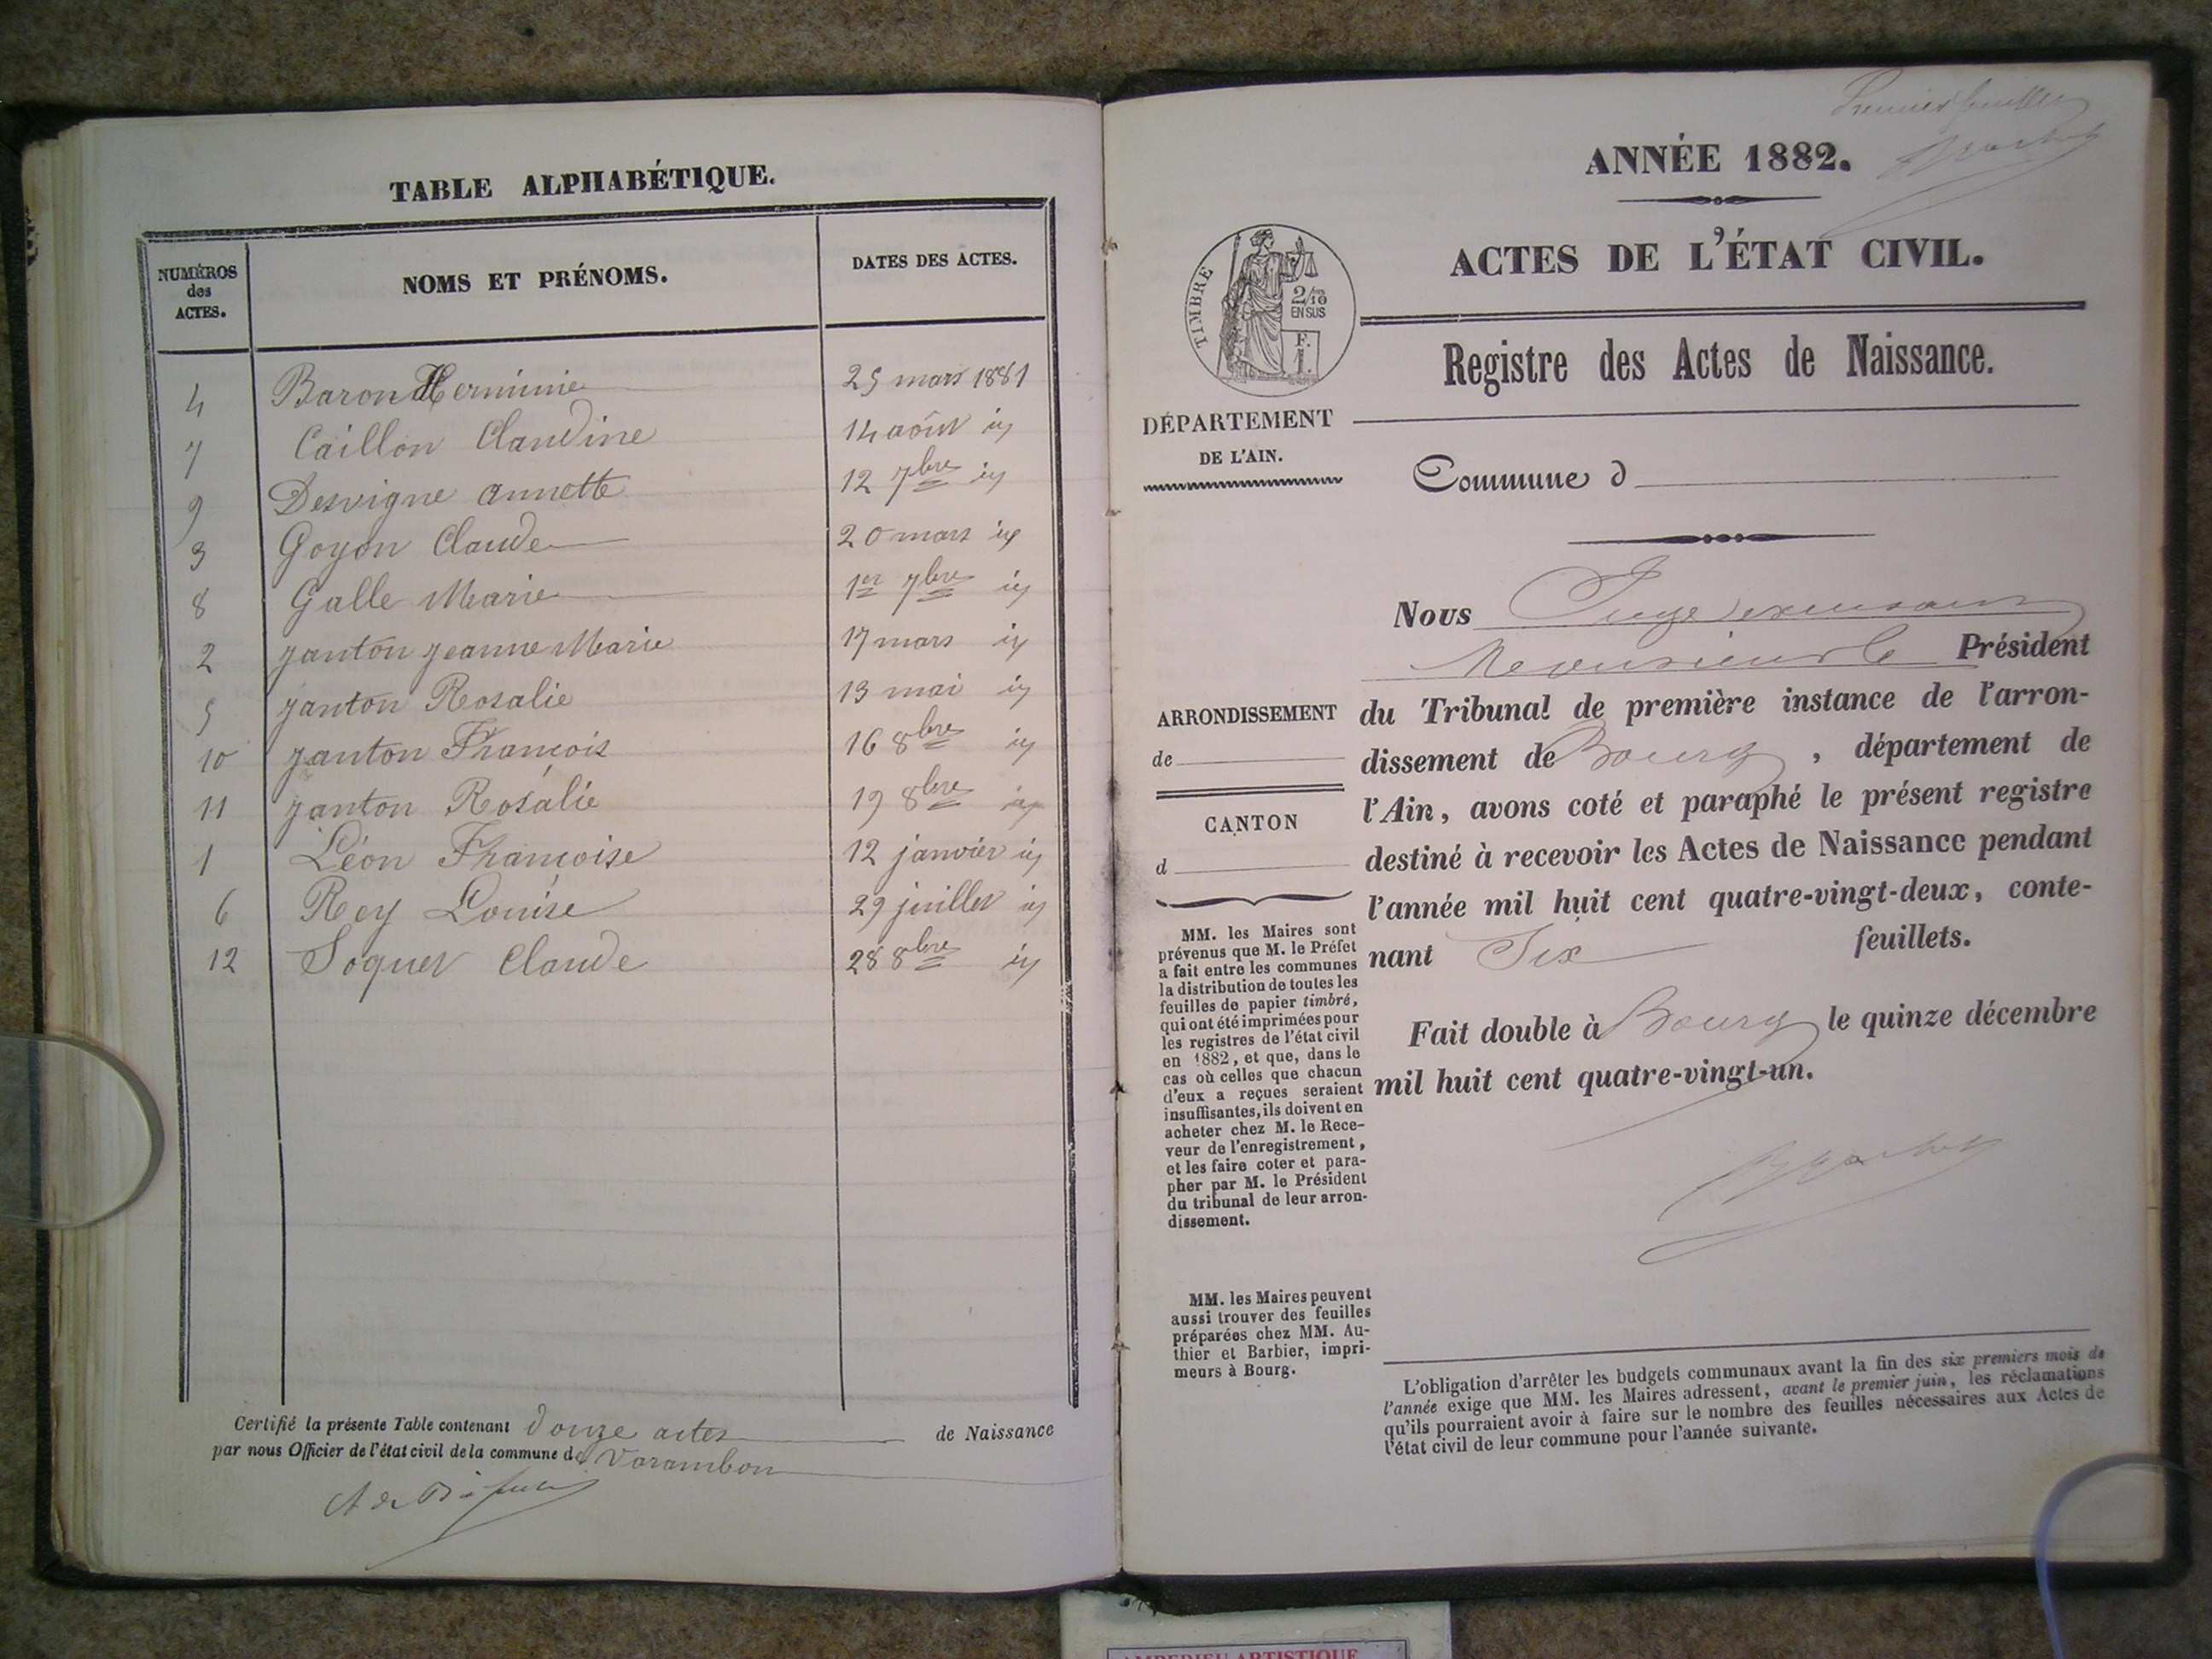 TABLE ALPHABÉTIQUE.
NUMÉROS des ACTES. NOMS ET PRÉNOMS. DATES DES ACTES.
4 Baron Herminie 25 mars 1881
7 Caillon Claudine 14 août id
9 Desvigne annette 12 7bre id
3 Goyon Claude 20 mars id
8 Galle Marie 1er 7bre id
2 janton jeanne Marie 17 mars id
5 janton Rosalie 13 mai id
10 janton François 16 8bre id
11 janton Rosalie 19 8bre id
1 Léon Françoise 12 janvier id
6 Rey Louise 29 juillet id
12 Soquet Claude 28 8bre id
Certifié la présente Table contenant douze actes de Naissance
par nous Officier de l'état civil de la commune de Varambon
Premier feuillet
ANNÉE 1882.
ACTES DE L'ÉTAT CIVIL.
TIMBRE
2/10 EN SUS
F. 1.
Registre des Actes de Naissance.
DÉPARTEMENT
DE L'AIN.
Commune d
Nous Juge
Monsieur le Président
du Tribunal de première instance de l'arron-
dissement de Bourg, département de
l'Ain, avons coté et paraphé le présent registre
destiné à recevoir les Actes de Naissance pendant
l'année mil huit cent quatre-vingt-deux, conte-
nant Six feuillets.
Fait double à Bourg le quinze décembre
mil huit cent quatre-vingt-un.
ARRONDISSEMENT
de
CANTON
d
MM. les Maires sont
prévenus que M. le Préfet
a fait entre les communes
la distribution de toutes les
feuilles de papier timbré,
qui ont été imprimées pour
les registres de l'état civil
en 1882, et que, dans le
cas où celles que chacun
d'eux a reçues seraient
insuffisantes, ils doivent en
acheter chez M. le Rece-
veur de l'enregistrement,
et les faire coter et para-
pher par M. le Président
du tribunal de leur arron-
dissement.
MM. les Maires peuvent
aussi trouver des feuilles
préparées chez MM. Au-
thier et Barbier, impri-
meurs à Bourg.
L'obligation d'arrêter les budgets communaux avant la fin des six premiers mois de
l'année exige que MM. les Maires adressent, avant le premier juin, les réclamations
qu'ils pourraient avoir à faire sur le nombre des feuilles nécessaires aux Actes de
l'état civil de leur commune pour l'année suivante.
ARTISTIQUE